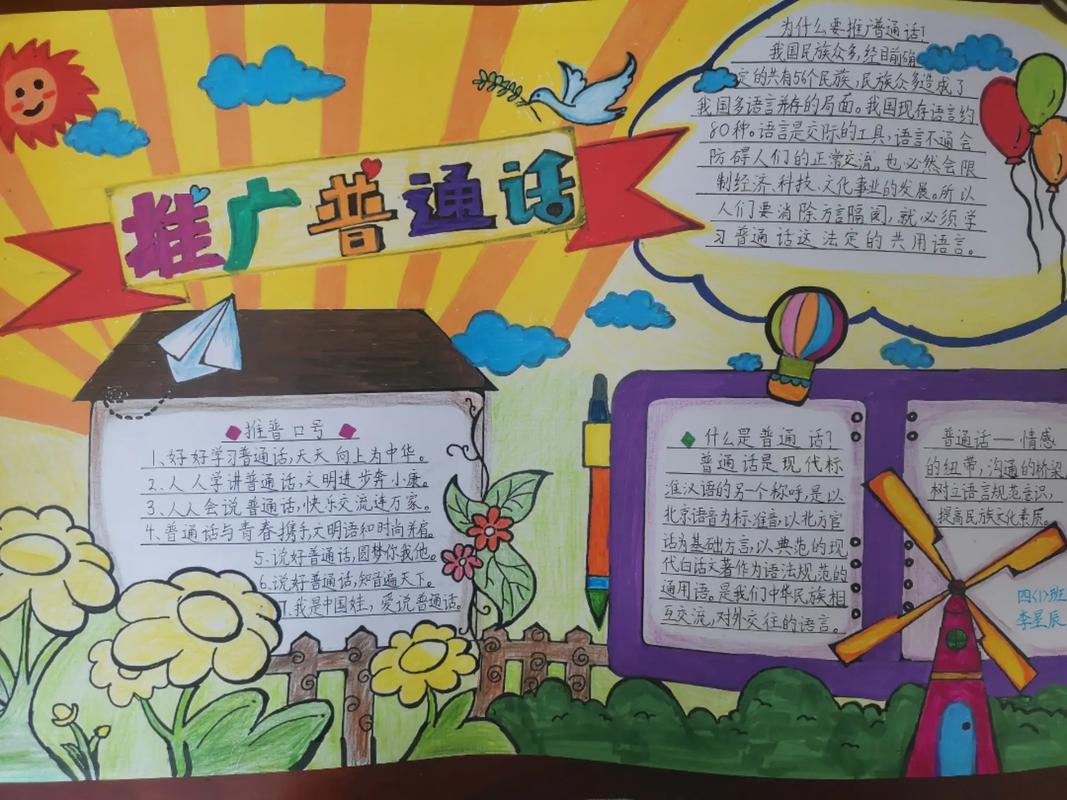 推广普通话
为什么要推广普通话?
我国民族众多,经目前确
定的共有56个民族,民族众多造成了
我国多语言并存的局面。我国现存语言约
80种。语言是交际的工具,语言不通会
防碍人们的正常交流,也必然会限
制经济、科技、文化事业的发展。所以
人们要消除方言隔阂,就必须学
习普通话这法定的共用语言。
推普口号
1、好好学习普通话,天天向上为中华。
2、人人学讲普通话,文明进步奔小康。
3、人人会说普通话,快乐交流连万家。
4、普通话与青春携手,文明语和时尚并肩。
5、说好普通话,圆梦你我他。
6、说好普通话,知音遍天下。
7.我是中国娃,爱说普通话。
什么是普通话?
普通话是现代标
准汉语的另一个称呼,是以
北京语音为标准音,以北方官
话为基础方言,以典范的现
代白话文著作为语法规范的
通用语。是我们中华民族相
互交流,对外交往的语言。
普通话——情感
的纽带,沟通的桥梁
树立语言规范意识,
提高民族文化素质。
四(1)班
李星辰